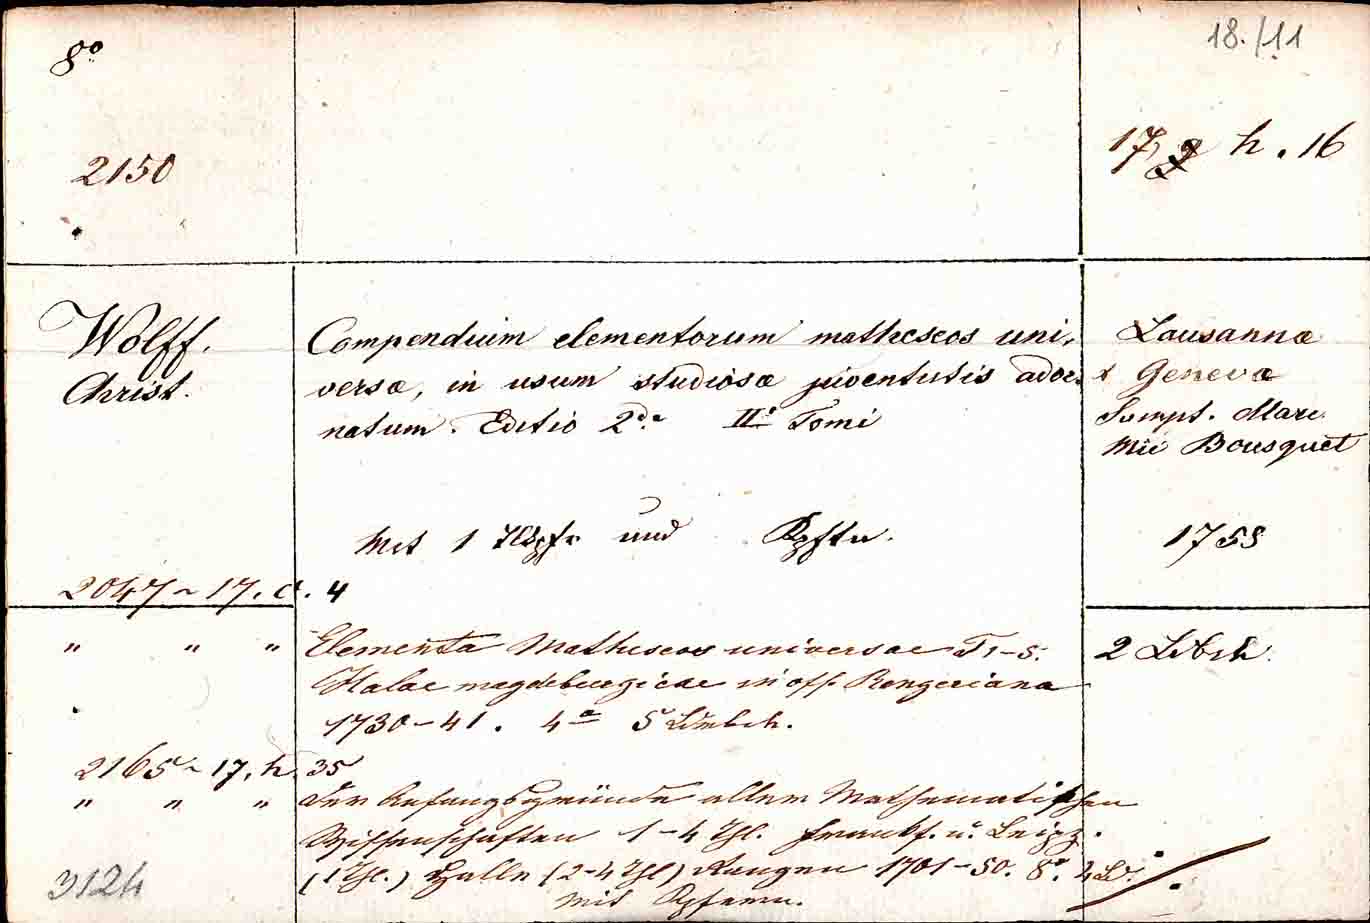 8°
18./11
2150
17, h. 16
Wolff.
Christ.
Compendium elementorum matheseos uni-
versæ, in usum studiosæ juventutis ador-
natum. Editio 2da II. Tomi
Mit 1 und Kpftn.
Lausannæ
& Genevæ
Sumpt. Marc
Mic Bousquet
1758
2047 ~ 17. d. 4
" " "
Elementa Matheseos universae T 1-5.
Halae magdeburgicae in off. Rengeriana
1730-41. 4° 5 Ldrbch.
2 Ldrbch.
2165 ~ 17. h. 35
" " "
Der Anfangsgründe aller Mathematischen
Wissenschaften 1-4 Thl. Frankf. u. Leipz.
(1 Thl.) Halle (2-4 Thl) Renger 1701-50. 8°.
mit Kpfern.
3124